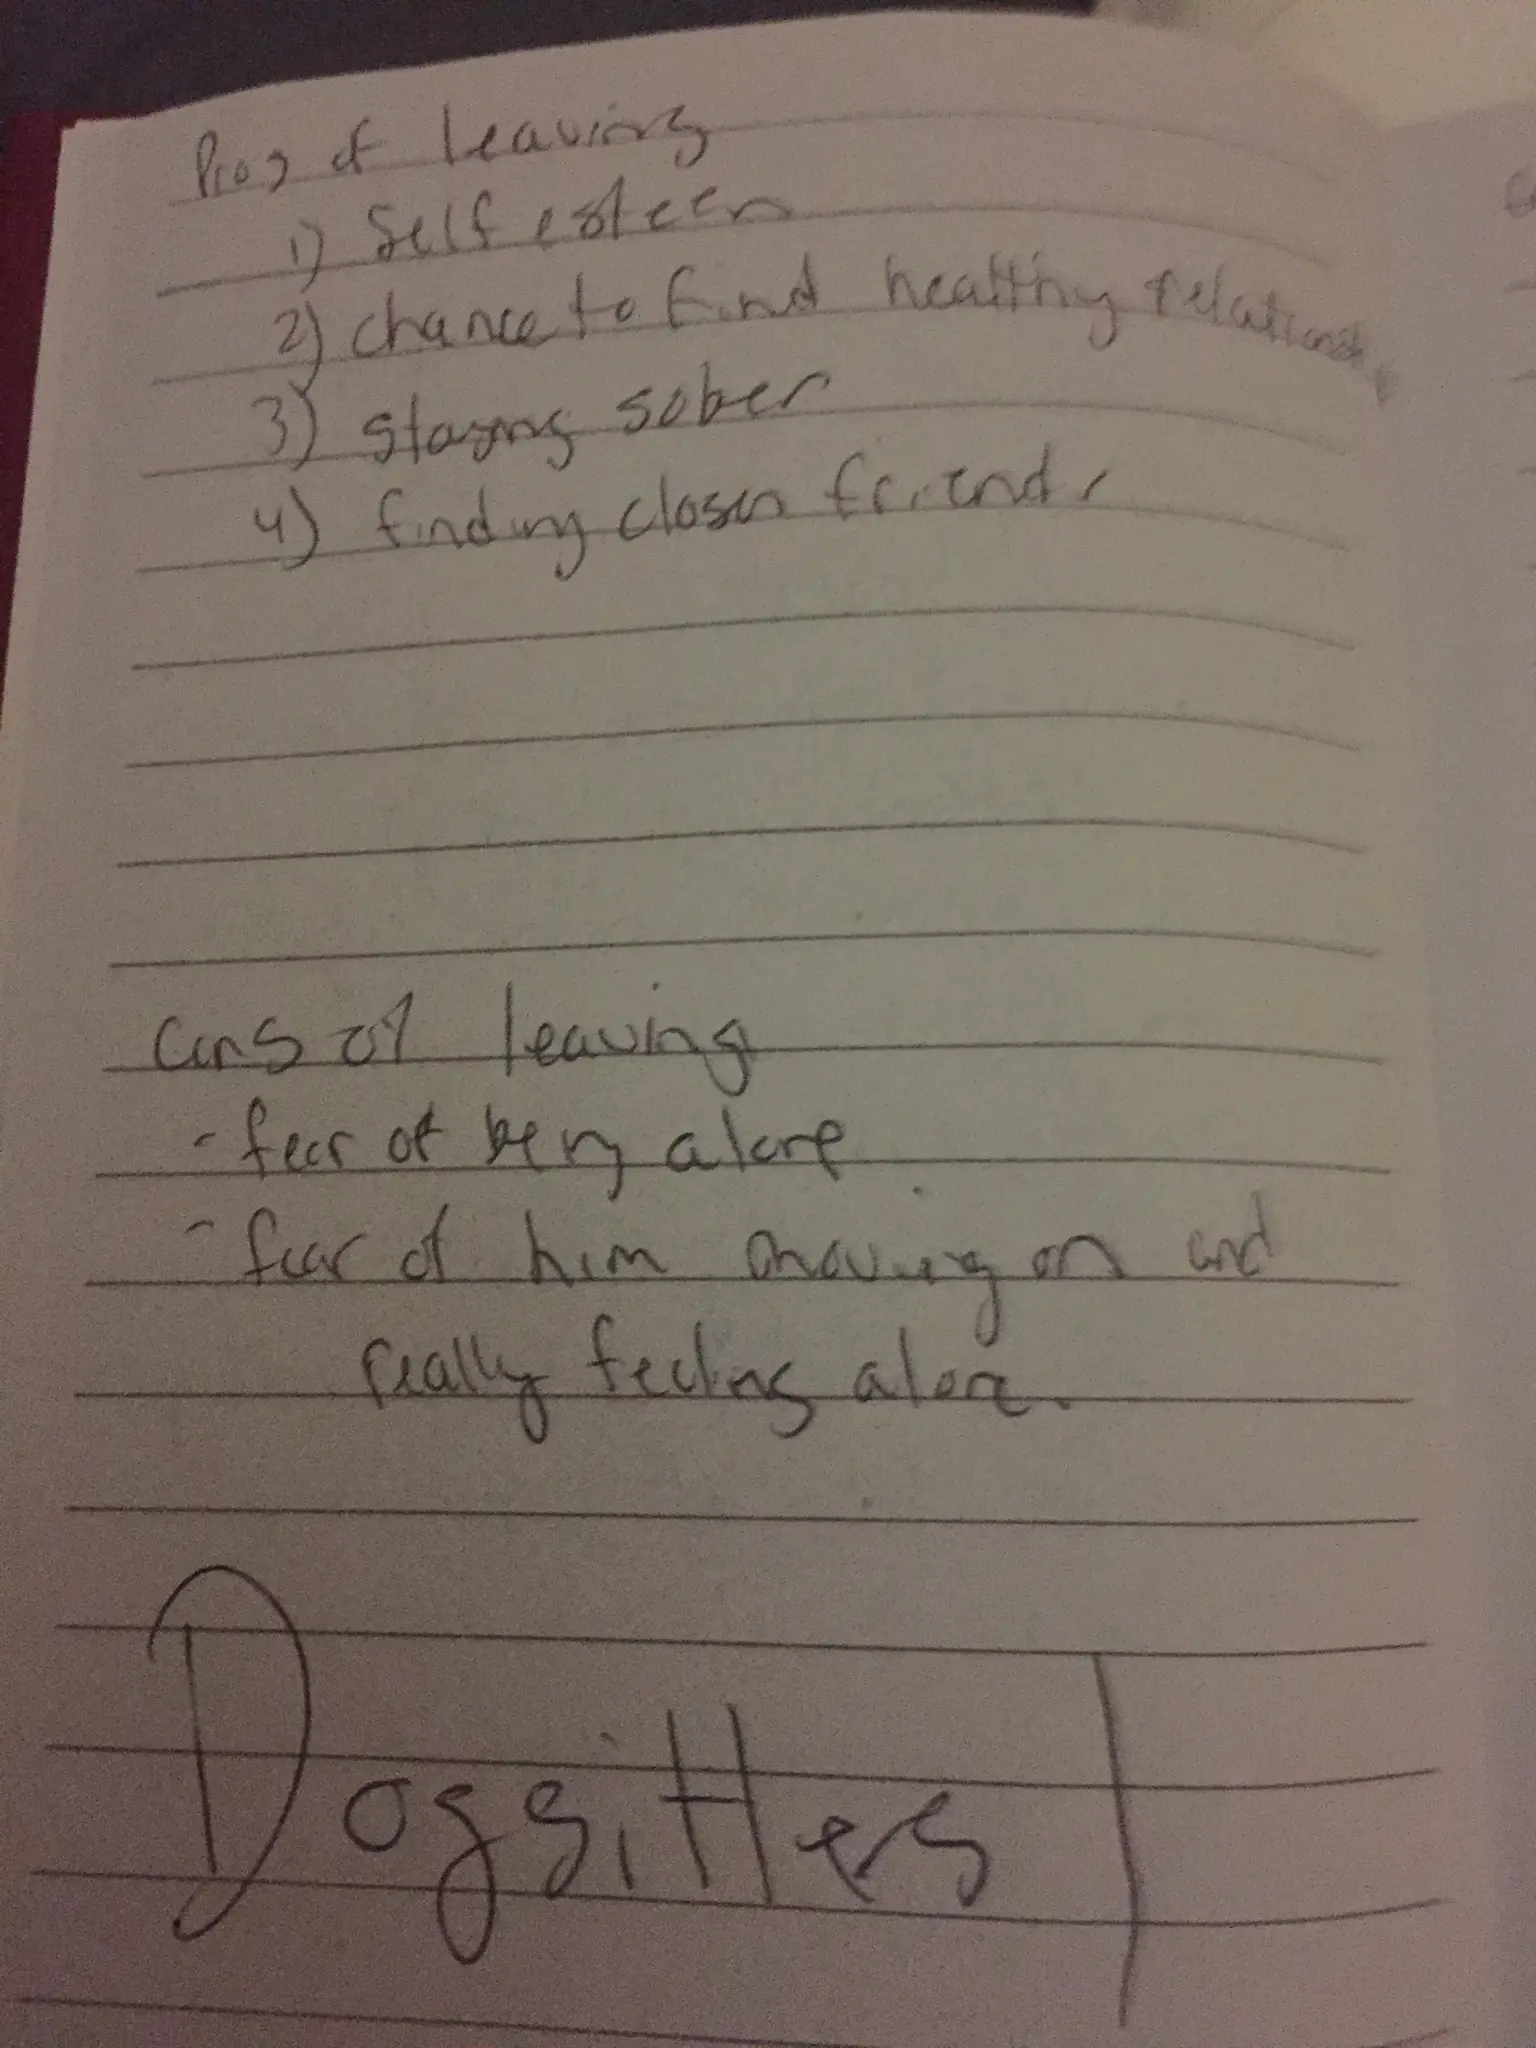 Pros of leaving
1) Self esteem
2) chance to find healthy relationship
3) staying sober
4) finding closer friends
Cons of leaving
- fear of being alone
- fear of him moving on and
really feeling alone.
Dogsitters